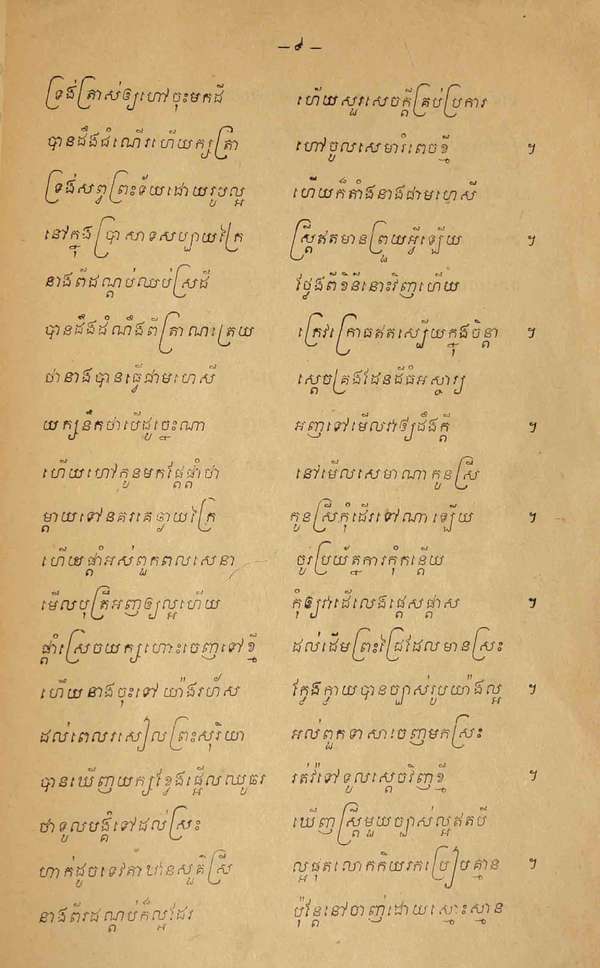 –៩–
ទ្រង់ត្រាស់ឲ្យហៅចុះមកដី ហើយសួរសេចក្ដីគ្រប់ប្រការ
បានដឹងដំណើរហើយក្សត្រា ហៅចូលសេមារំពេចខ្មី ។
ទ្រង់សព្វព្រះទ័យដោយរូបល្អ ហើយក៏តាំងនាងជាមហេសី
នៅក្នុងប្រាសាទសប្បាយក្រៃ ស្ត្រីឥតមានព្រួយអ្វីឡើយ ។
នាងពីដណ្ដប់ឈប់ស្រដី ថ្លែងពីខិនីនោះវិញហើយ
បានដឹងដំណឹងពីត្រាណត្រើយ ក្រេវក្រោធឥតស្បើយក្នុងចិន្ដា ។
ថានាងបានធ្វើជាមហេសី ស្ដេចគ្រងដែនដីធំអស្ចារ្យ
យក្សនឹកថាបើដូច្នេះណា អញទៅមើលវាឲ្យដឹងក្ដី ។
ហើយហៅកូនមកផ្ដែផ្ដាំថា នៅមើលសេមាណាកូនស្រី
ម្ដាយទៅនគរគេឆ្ងាយក្រៃ កូនស្រីកុំដើរទៅណាឡើយ ។
ហើយផ្ដាំអស់ពួកពលសេនា ចូរប្រយ័ត្នការកុំកន្តើយ
មើលបុត្រីអញឲ្យល្អហើយ កុំឲ្យវាដើលេងផ្ដេសផ្ដាស ។
ផ្ដាំស្រេចយក្សហោះចេញទៅខ្មី ដល់ដើមព្រះជ្រៃដែលមានស្រះ
ហើយនាងចុះទៅយ៉ាងរហ័ស ក្លែងក្លាយបានច្បាស់រូបយ៉ាងល្អ ។
ដល់ពេលរសៀលព្រះសុរិយា អល់ពួកទាសាចេញមកស្រះ
បានឃើញយក្សខ្លែងផ្អើលឈូឆរ រត់វ៉ាទៅទូលស្ដេចវិញខ្មី ។
ថាទូលបង្គំទៅដល់ស្រះ ឃើញស្ត្រីមួយច្បាស់ល្អឥតបី
ហាក់ដូចទេវតាឋានសួគ៌ស្រី ល្អផុតលោកកិយរកប្រៀបគ្មាន ។
នាងពីរដណ្ដប់ក៏ល្អដែរ ប៉ុន្តែនៅចាញ់ដោយស្មោះស្មាន